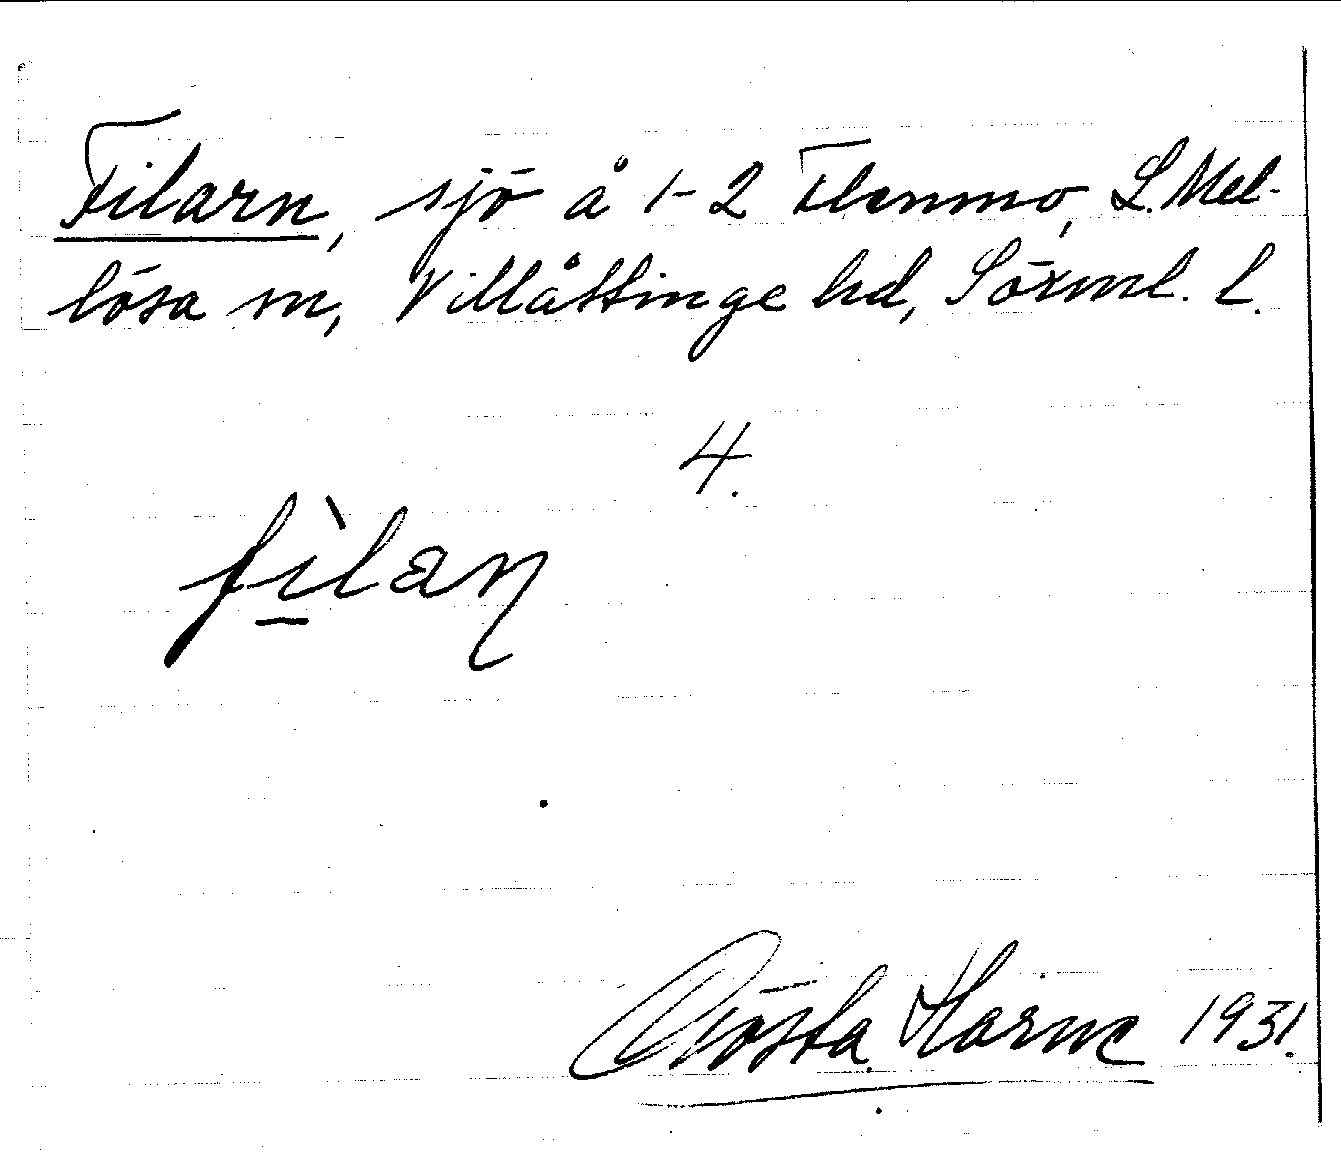 Filarn, sjö å 1-2 Flenmo, L. Mel-
lösa sn, Villåttinge hd, Sörml. l.
4.
fìlaɳ
Gösta Harne 1931.